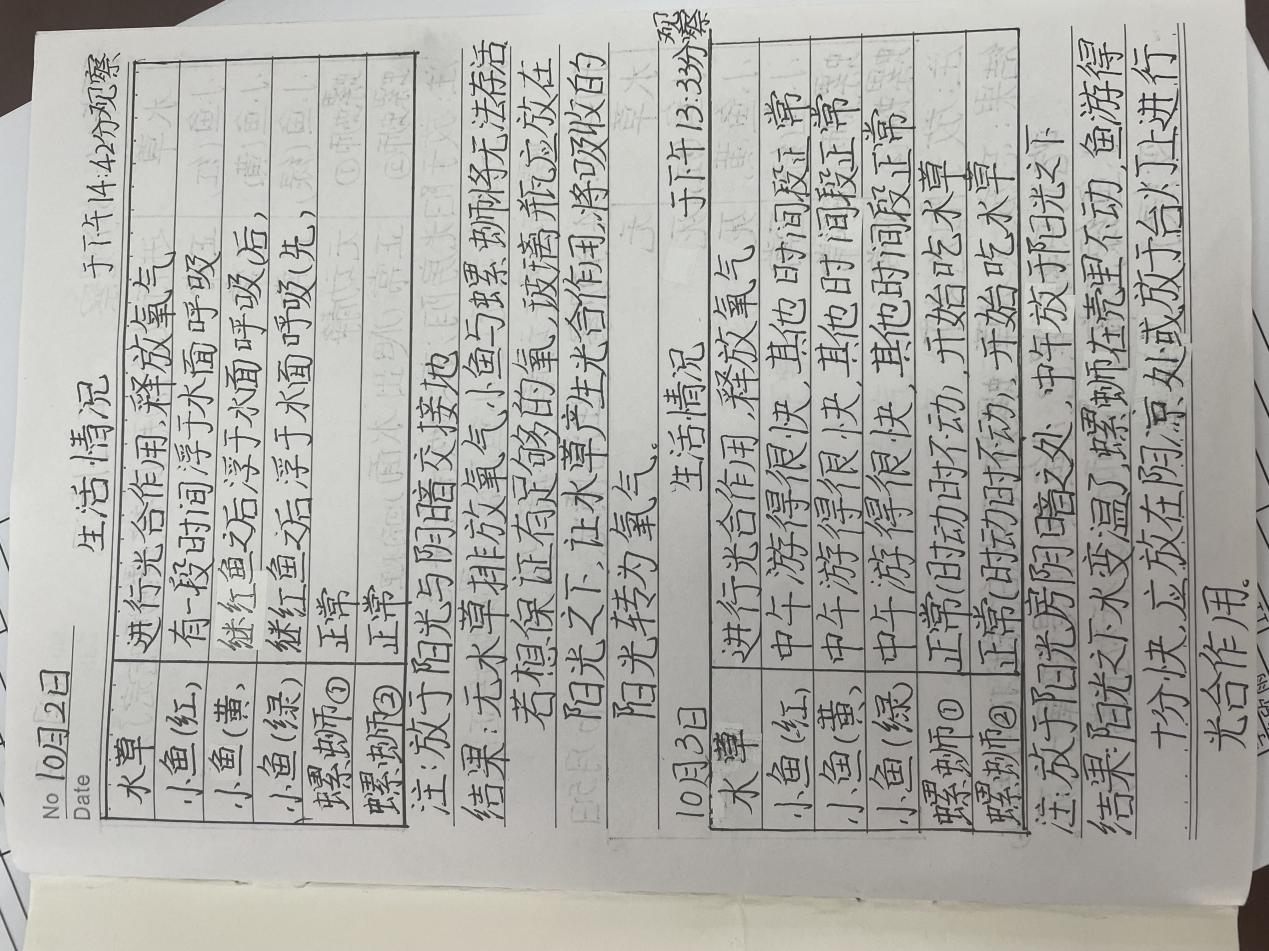 No 10月2日
Date 生活情况 于下午14:42分观察
水草 进行光合作用,释放氧气
小鱼(红) 有一段时间浮于水面呼吸
小鱼(黄) 继红鱼之后浮于水面呼吸(后)
小鱼(绿) 继红鱼之后浮于水面呼吸(先)
螺蛳① 正常
螺蛳② 正常
注:放于阳光与阴暗交接地
结果:无水草排放氧气,小鱼与螺蛳将无法存活
若想保证有足够的氧,玻璃瓶应放在
阳光之下,让水草产生光合作用,将吸收的
阳光转为氧气.
10月3日 生活情况 于下午13:33分观察
水草 进行光合作用 释放氧气
小鱼(红) 中午游得很快,其他时间段正常
小鱼(黄) 中午游得很快,其他时间段正常
小鱼(绿) 中午游得很快,其他时间段正常
螺蛳① 正常(时动时不动),开始吃水草
螺蛳② 正常(时动时不动),开始吃水草
注:放于阳光房阴暗之处,中午放于阳光之下
结果:阳光之下水变温了,螺蛳在壳里不动,鱼游得
十分快,应放在阴凉处或放于台灯上进行
光合作用.